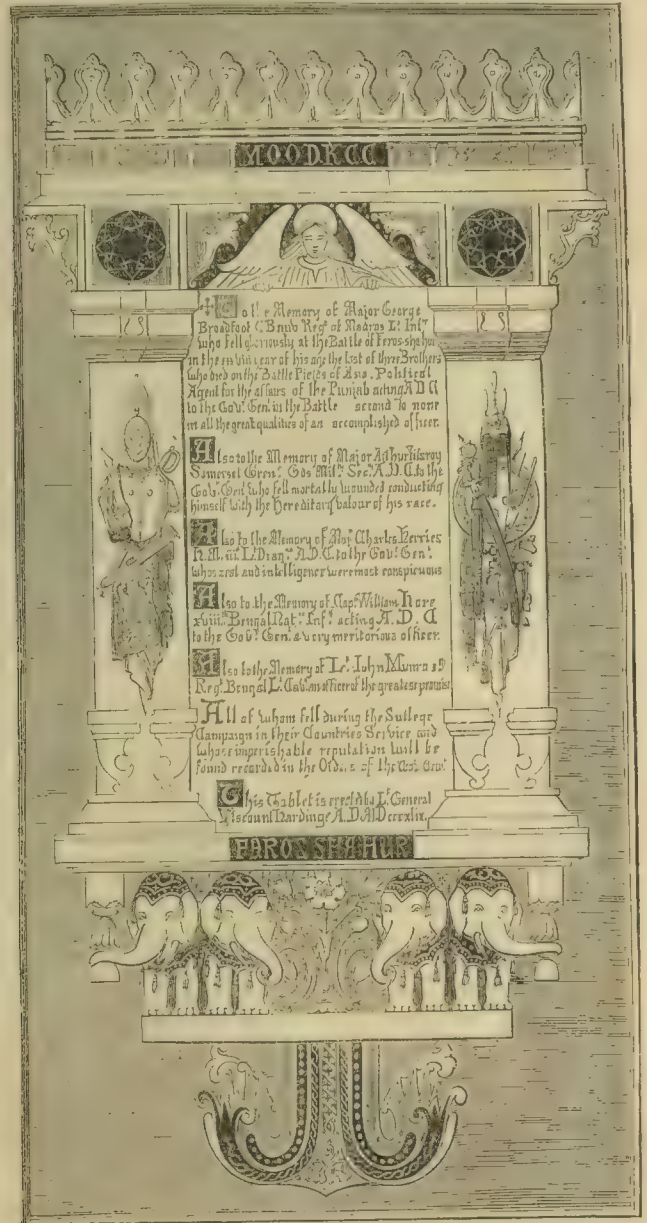 MOODKEE
To the Memory of Major George
Broadfoot C.B. Regt of Madras Lt Infy
who fell gloriously at the Battle of Feros-shahur
in the year of his age the last of three Brothers
who died on the Battle Fields of Asia. Political
Agent for the affairs of the Punjab acting A D C
to the Govr Genl in the Battle second to none
in all the great qualities of an accomplished officer.
Also to the Memory of Major Arthur Fitzroy
Somerset Grenr Gds Mily Secy A. D. C. to the
Govr Genl who fell mortally wounded conducting
himself with the Hereditary valour of his race.
Also to the Memory of Majr Charles Herries
H. M. iii Lt Dragns A.D.C. to the Govr Genl
whose zeal and intelligence were most conspicuous
Also to the Memory of Capn William Hore
xviii Bengal Nate Infy acting A. D. C
to the Govr Genl a very meritorious officer.
Also to the Memory of Lt John Munro
Regt Bengal Lt Cav an officer of the greatest promise
All of whom fell during the Sutlege
Campaign in their Countries Service and
whose imperishable reputation will be
found recorded in the Orders of the Govr Genl
This Tablet is erected by Lt General
Viscount Hardinge A. D. MDcccxlix.
FAROZSHAHUR